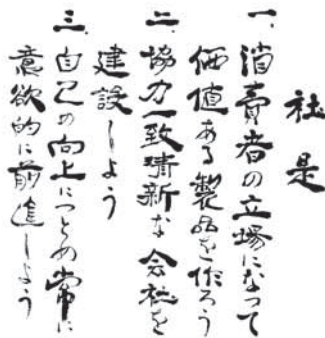 社是
一、消賣者の立場になって
価値ある製品を作ろう
二、協力一致清新な会社を
建設しよう
三、自己の向上につとめ常に
意欲的に前進しよう